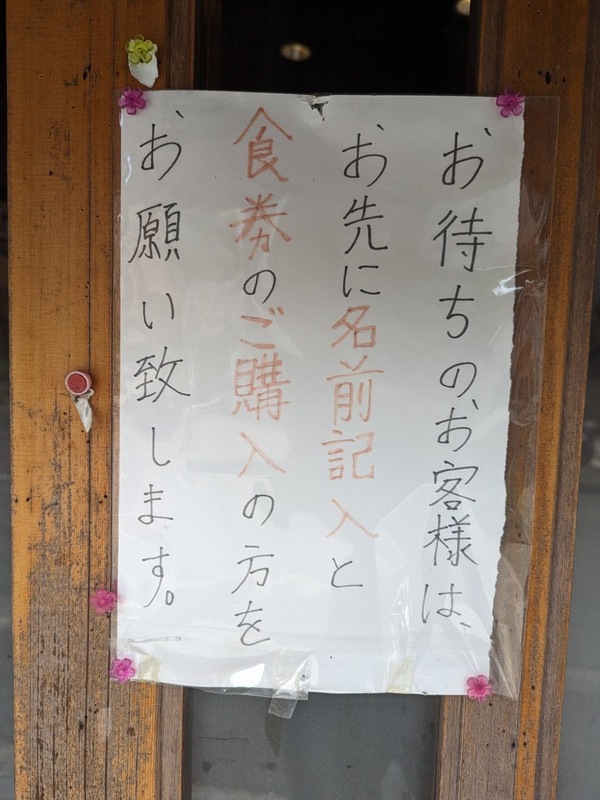 お待ちのお客様は、
お先に名前記入と
食券のご購入の方を
お願い致します。